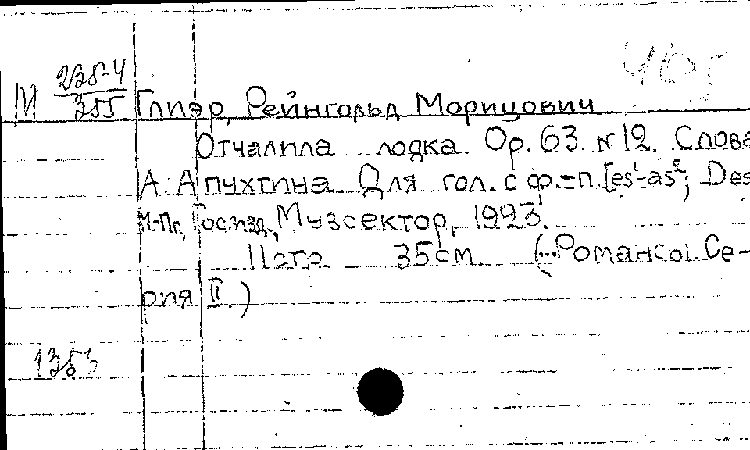 М 228-4
355 Глиэр, Рейнгольд Морицович
405
Отчалила лодка. Op. 63. №12. Слова
А. Апухтина. Для гол. с ф.-п. [es¹-as²; Des
М.-Пг., Госизд., Музсектор, 1923.
11стр 35см (...Романсы. Се-
рия II.)
1353